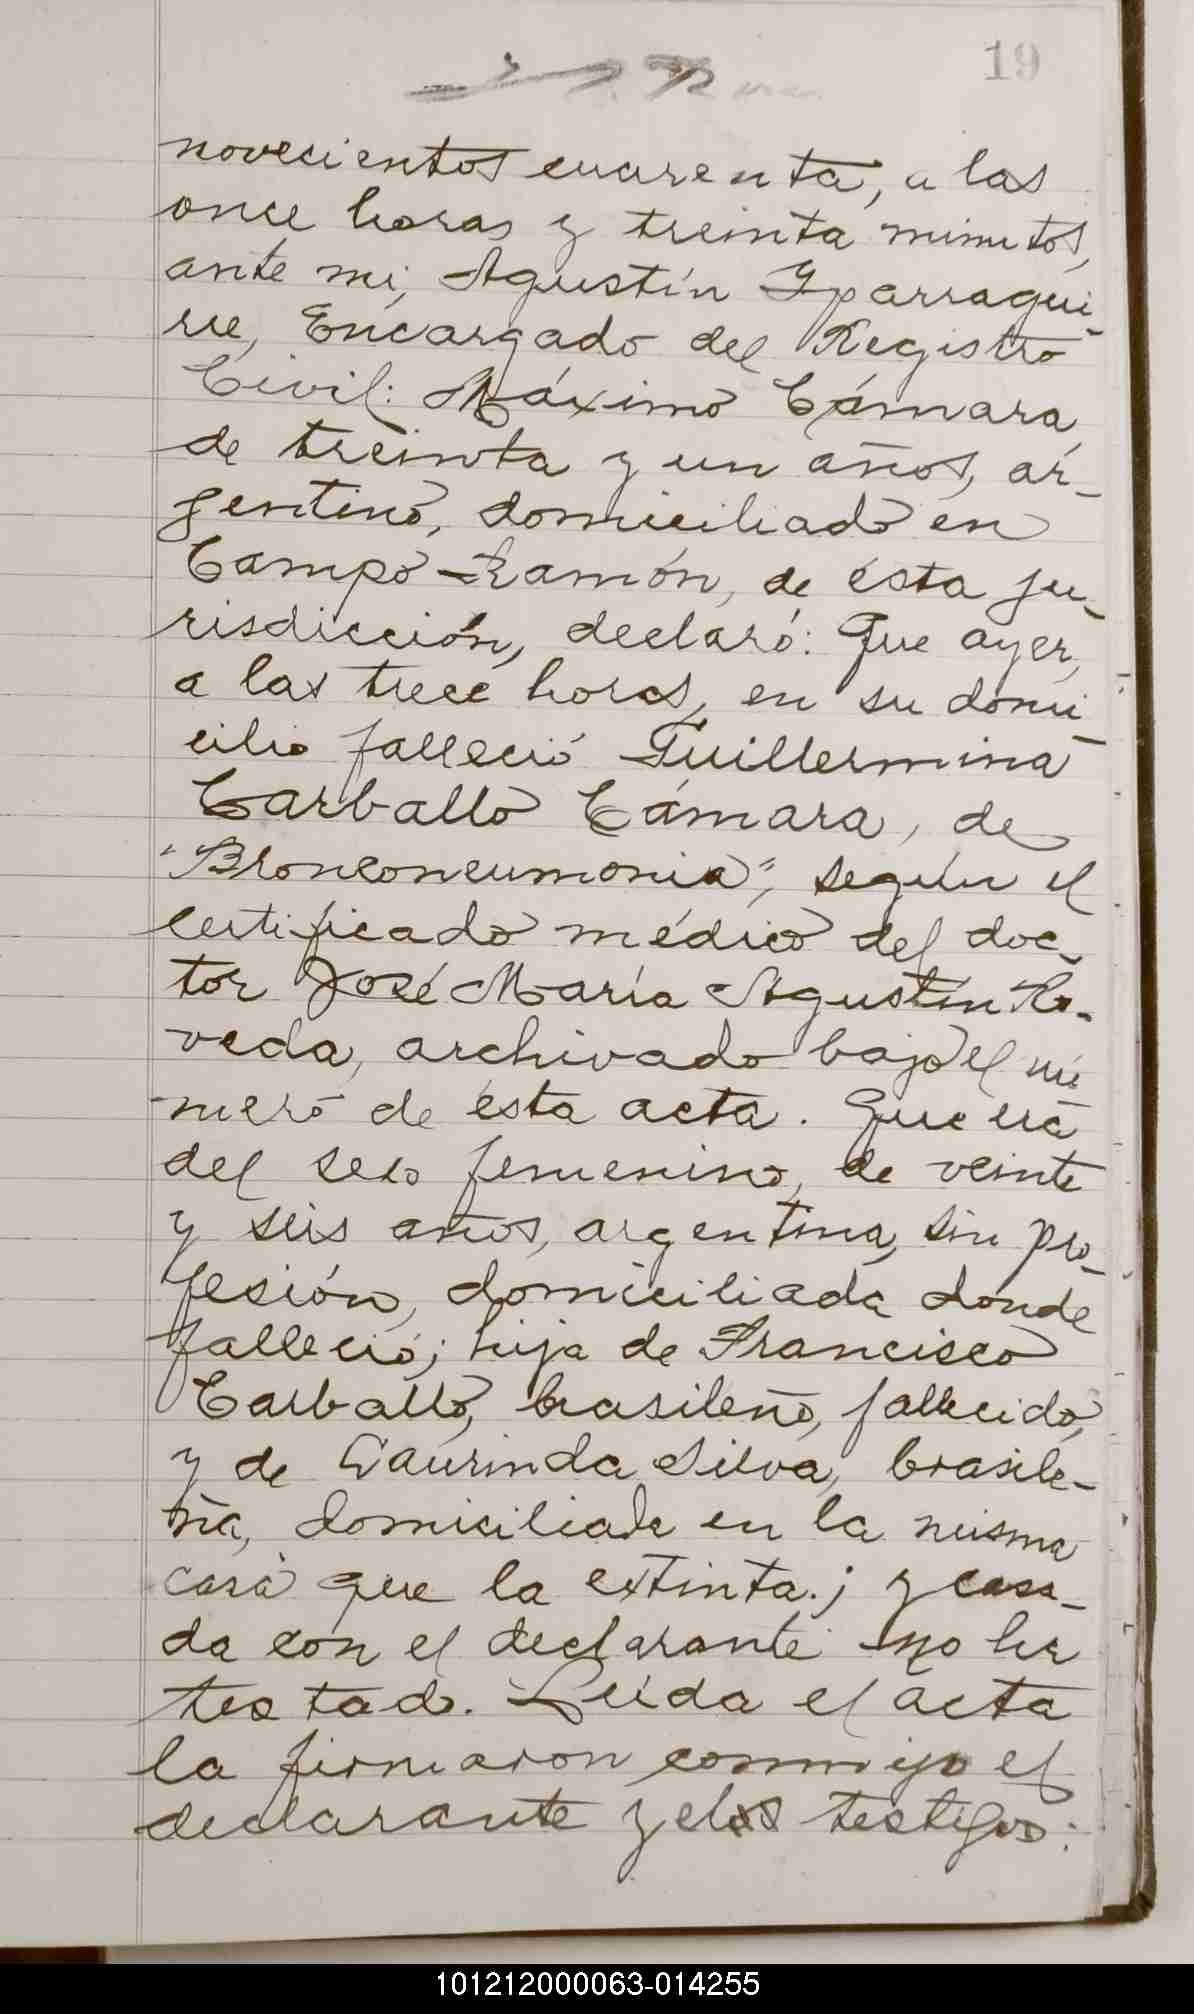 19
novecientos cuarenta, a las
once horas y treinta minutos,
ante mi, Agustín Yparragui-
rre, Encargado del Registro
Civil: Máximo Cámara,
de treinta y un años, ar-
gentino, domiciliado en
Campo Ramón, de ésta ju-
risdicción, declaró: Que ayer,
a las trece horas, en su domi-
cilio falleció Guillermina
Carballo Cámara, de
"Bronconeumonia", según el
certificado médico del doc-
tor José María Agustín Ro-
veda, archivado bajo el nú
mero de ésta acta. Que era
del sexo femenino, de veinte
y seis años, argentina, sin pro-
fesión, domiciliada donde
falleció; hija de Francisco
Carballo, brasileño, fallecido,
y de Laurinda Silva, brasile-
ña, domiciliada en la misma
casa que la extinta.; y casa-
da con el declarante no ha
testado. Leída el acta
la firmaron conmigo el
declarante y los testigos:
101212000063-014255